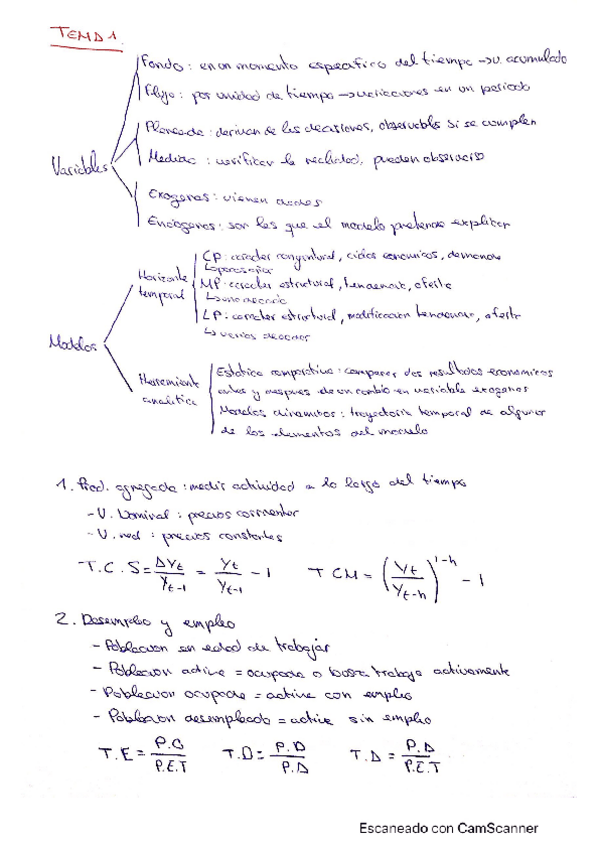 TEMA 1.
Fondo: en un momento específico del tiempo → v. acumulado
Flujo: por unidad de tiempo → variaciones en un periodo
Planeada: derivan de las decisiones, observables si se cumplen
Medida: verificar la realidad, pueden observarse
Variables
Exogenas: vienen dadas
Endogenas: son las que el modelo pretende explicar
CP: caracter conyuntural, ciclos economicos, demanda
Horizonte temporal
MP: caracter estructural, tendencia, oferta
↳ una decada
LP: caracter estructural, modificacion tendencia, oferta
↳ varias decadas
Modelos
Herramienta analitica
Estatica comparativa: comparar dos resultados economicos
antes y despues de un cambio en variable exogena
Modelos dinamicos: trayectoria temporal de alguno
de los elementos del modelo
1. Prod. agregada: medir actividad a lo largo del tiempo
- V. Nominal: precios corrientes
- V. real: precios constantes
T.C.S = ΔYt / Yt-1 = Yt / Yt-1 - 1 TCM = (Yt / Yt-h)^1-h - 1
2. Desempleo y empleo
- Poblacion en edad de trabajar
- Poblacion activa = ocupada o busca trabajo activamente
- Poblacion ocupada = activa con empleo
- Poblacion desempleada = activa sin empleo
T.E = P.O / P.E.T T.D = P.D / P.A T.A = P.A / P.E.T
Escaneado con CamScanner